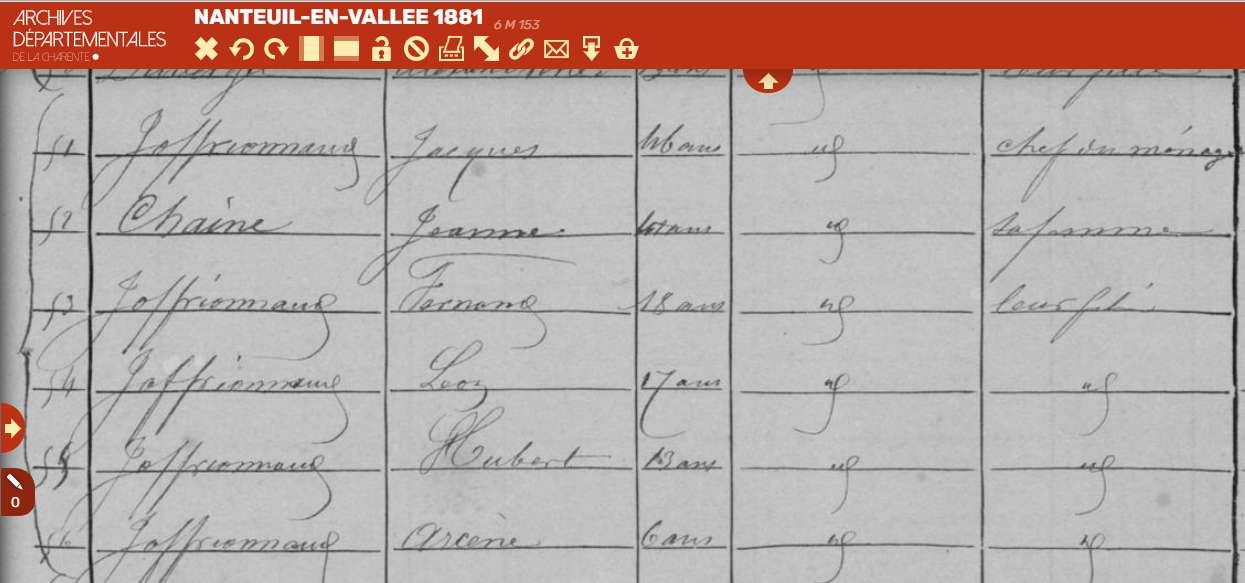 ARCHIVES
DÉPARTEMENTALES
DE LA CHARENTE
NANTEUIL-EN-VALLEE 1881 6 M 153
51 Joffrionnaud Jacques 46 ans id chef du ménage
52 Chaine Jeanne 41 ans id sa femme
53 Joffrionnaud Fernand 18 ans id leur fils
54 Joffrionnaud Léon 17 ans id id
55 Joffrionnaud Hubert 13 ans id id
56 Joffrionnaud Arcène 6 ans id id
0